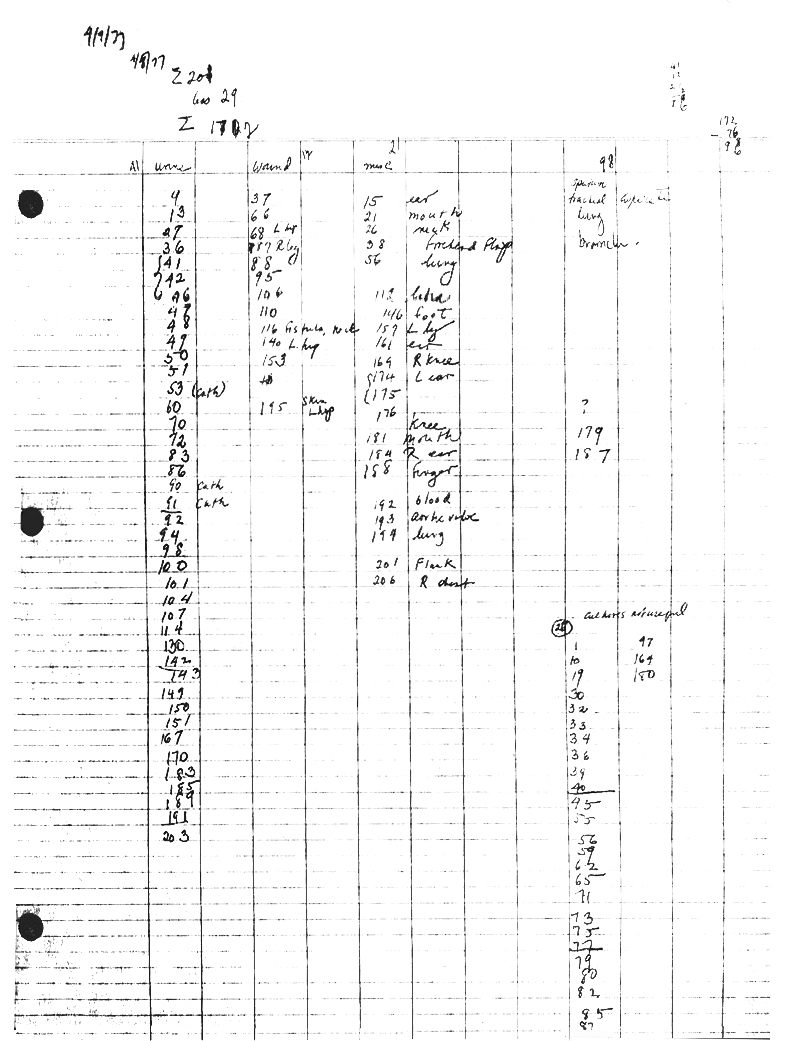 4/9/77
4/8/77
Σ 201
29
Σ 172
41
12
172
- 76
98
Urine
wound 14
21
misc
98
Sputum
tracheal
lung
bronch.
4 37 15 ear
13 66 21 mouth
27 68 L leg 26 neck
36 87 R leg 38 forehead
41 88 56 lung
42 95
46 106 112
47 110 146 foot
48 116 fistula, neck 157 L leg
49 140 L. leg 161 ear
50 153 169 R knee
51 174 L ear
53 (cath) 175
60 195 skin L hip 176 ?
70 knee
72 181 mouth 179
83 184 R ear 187
86 188 finger
90 cath
91 cath 192 blood
92 193 aortic valve
94 194 lung
98
100 201 Flank
101 206 R chest
104
107
114
130 1 97
142 10 164
143 19 180
149 30
150 32
151 33
167 34
170 36
183 39
185 40
189 45
191 55
203 56
59
62
65
71
73
75
77
79
80
82
85
87